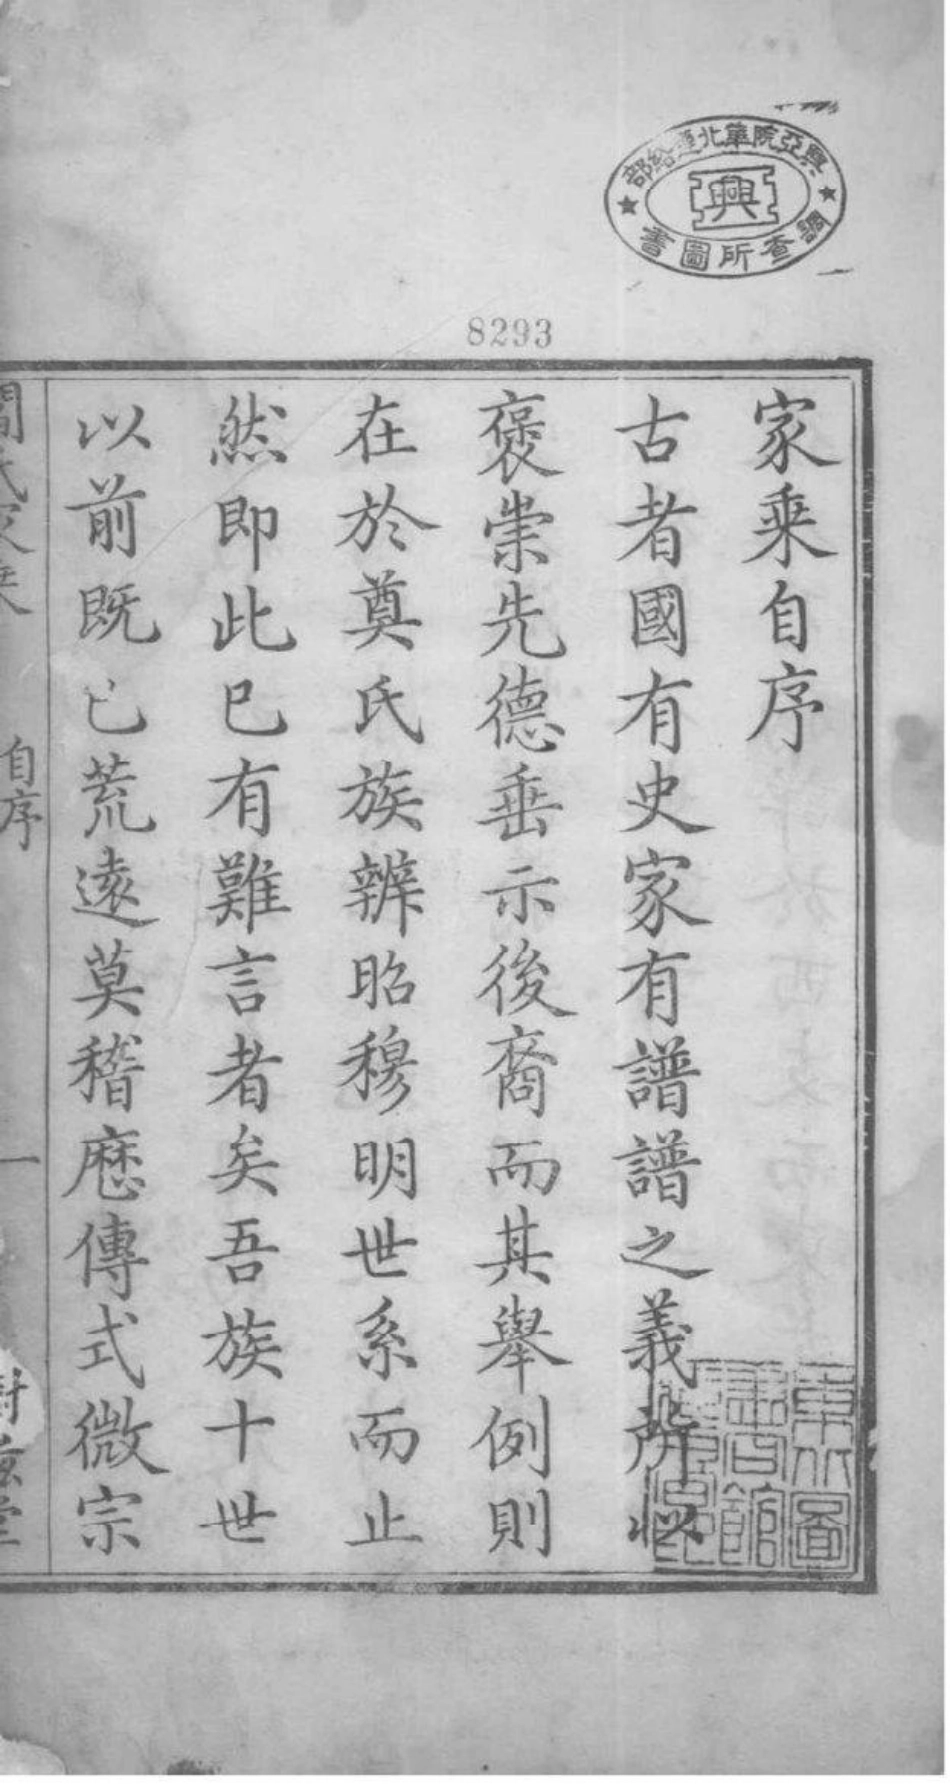 興亞院華北連絡部
興
調查所圖書
8293
家乘自序
古者國有史家有譜譜之義所以
褒崇先德垂示後裔而其舉例則
在於奠氏族辨昭穆明世系而止
然即此已有難言者矣吾族十世
以前既已荒遠莫稽歷傳式微宗
自序
一